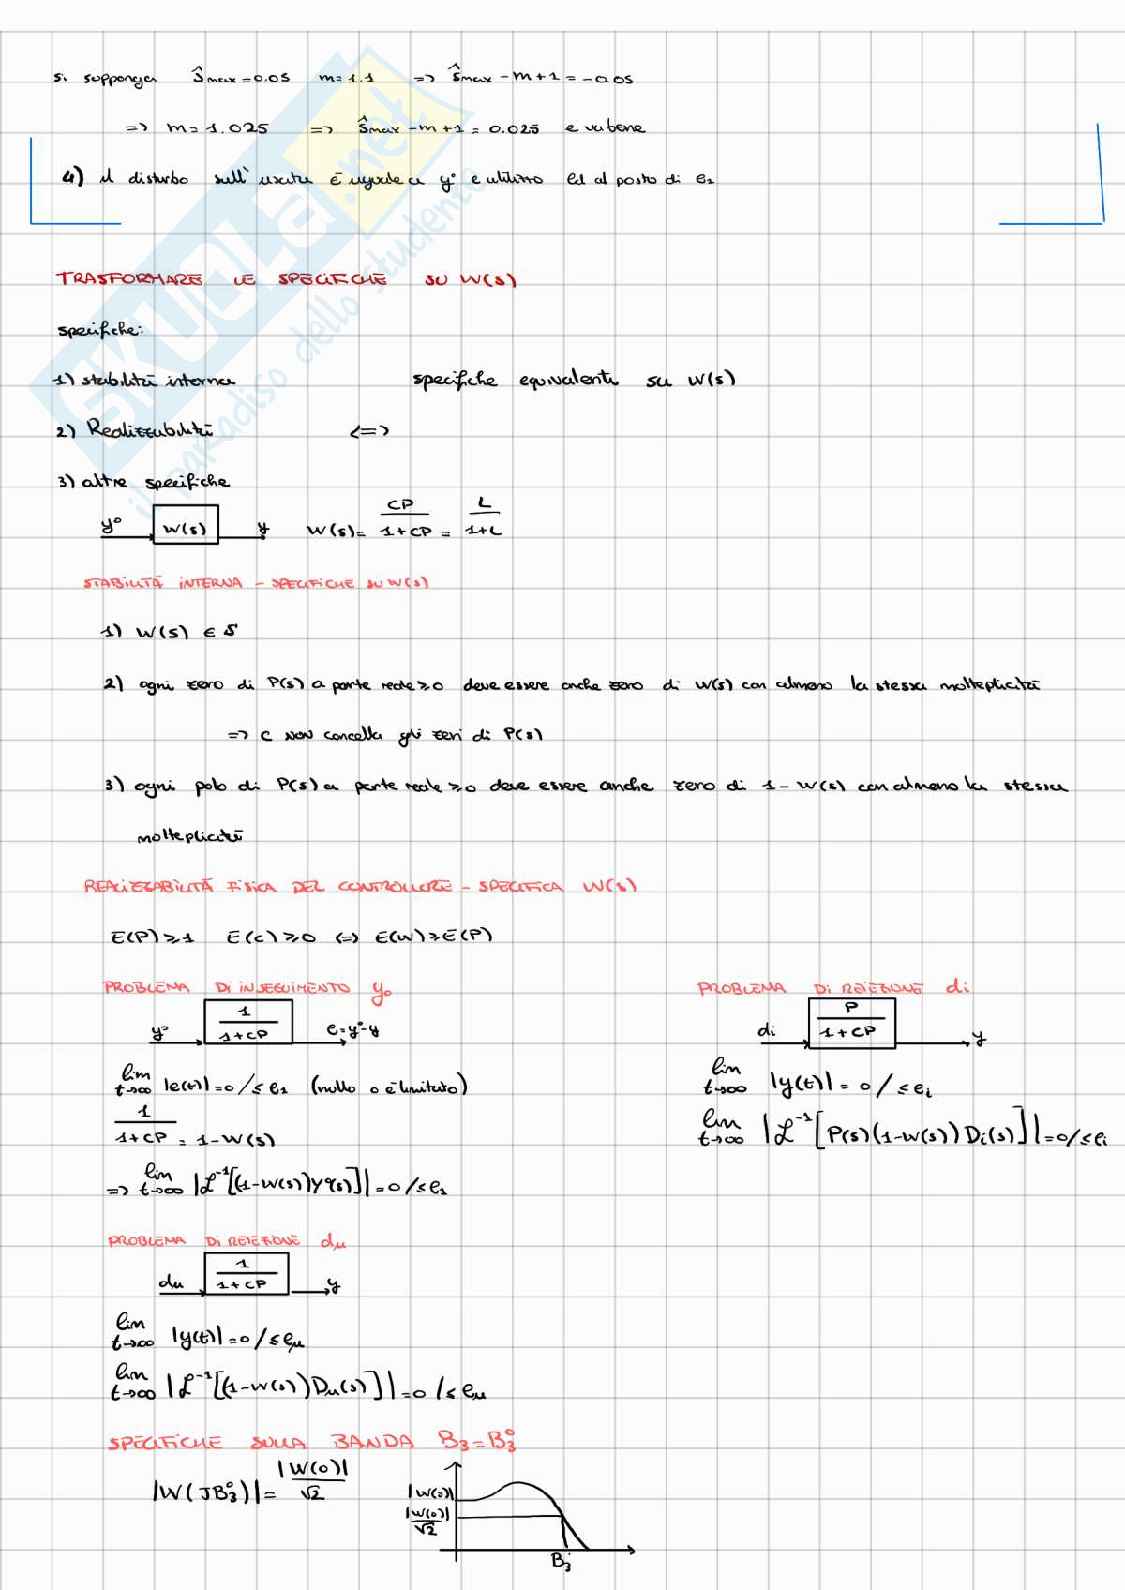 si supponga ŝmax=0.05 m=1.1 => ŝmax-m+1=-0.05
=> m=1.025 => ŝmax-m+1=0.025 e va bene
4) il disturbo sull'uscita è uguale a y° e utilizzo ed al posto di e2
TRASFORMARE LE SPECIFICHE SU W(s)
specifiche:
1) stabilità interna specifiche equivalenti su W(s)
2) Realizzabilità <=>
3) altre specifiche
y° W(s) y W(s)= CP/1+CP = L/1+L
STABILITÀ INTERNA - SPECIFICHE SU W(s)
1) W(s) ∈ S
2) ogni zero di P(s) a parte reale ≥0 deve essere anche zero di W(s) con almeno la stessa molteplicità
=> C NON cancella gli zeri di P(s)
3) ogni polo di P(s) a parte reale ≥0 deve essere anche zero di 1-W(s) con almeno la stessa
molteplicità
REALIZZABILITÀ FISICA DEL CONTROLLORE - SPECIFICA W(s)
E(P)≥1 E(C)≥0 <=> E(W)≥E(P)
PROBLEMA DI INSEGUIMENTO y₀
y° 1/1+CP e=y°-y
lim t→∞ |e(t)|=0/≤e2 (nullo o è limitato)
1/1+CP = 1-W(s)
=> lim t→∞ |ℒ⁻¹[(1-W(s))Y°(s)]|=0/≤e2
PROBLEMA DI REIEZIONE di
di P/1+CP y
lim t→∞ |y(t)|=0/≤ei
lim t→∞ |ℒ⁻¹[P(s)(1-W(s))Di(s)]|=0/≤ei
PROBLEMA DI REIEZIONE du
du 1/1+CP y
lim t→∞ |y(t)|=0/≤eu
lim t→∞ |ℒ⁻¹[(1-W(s))Du(s)]|=0/≤eu
SPECIFICHE SULLA BANDA B3=B3°
|W(JB3°)|=|W(0)|/√2
|W(0)|
|W(0)|/√2
B3
SKUOLA.net
il paradiso dello studente